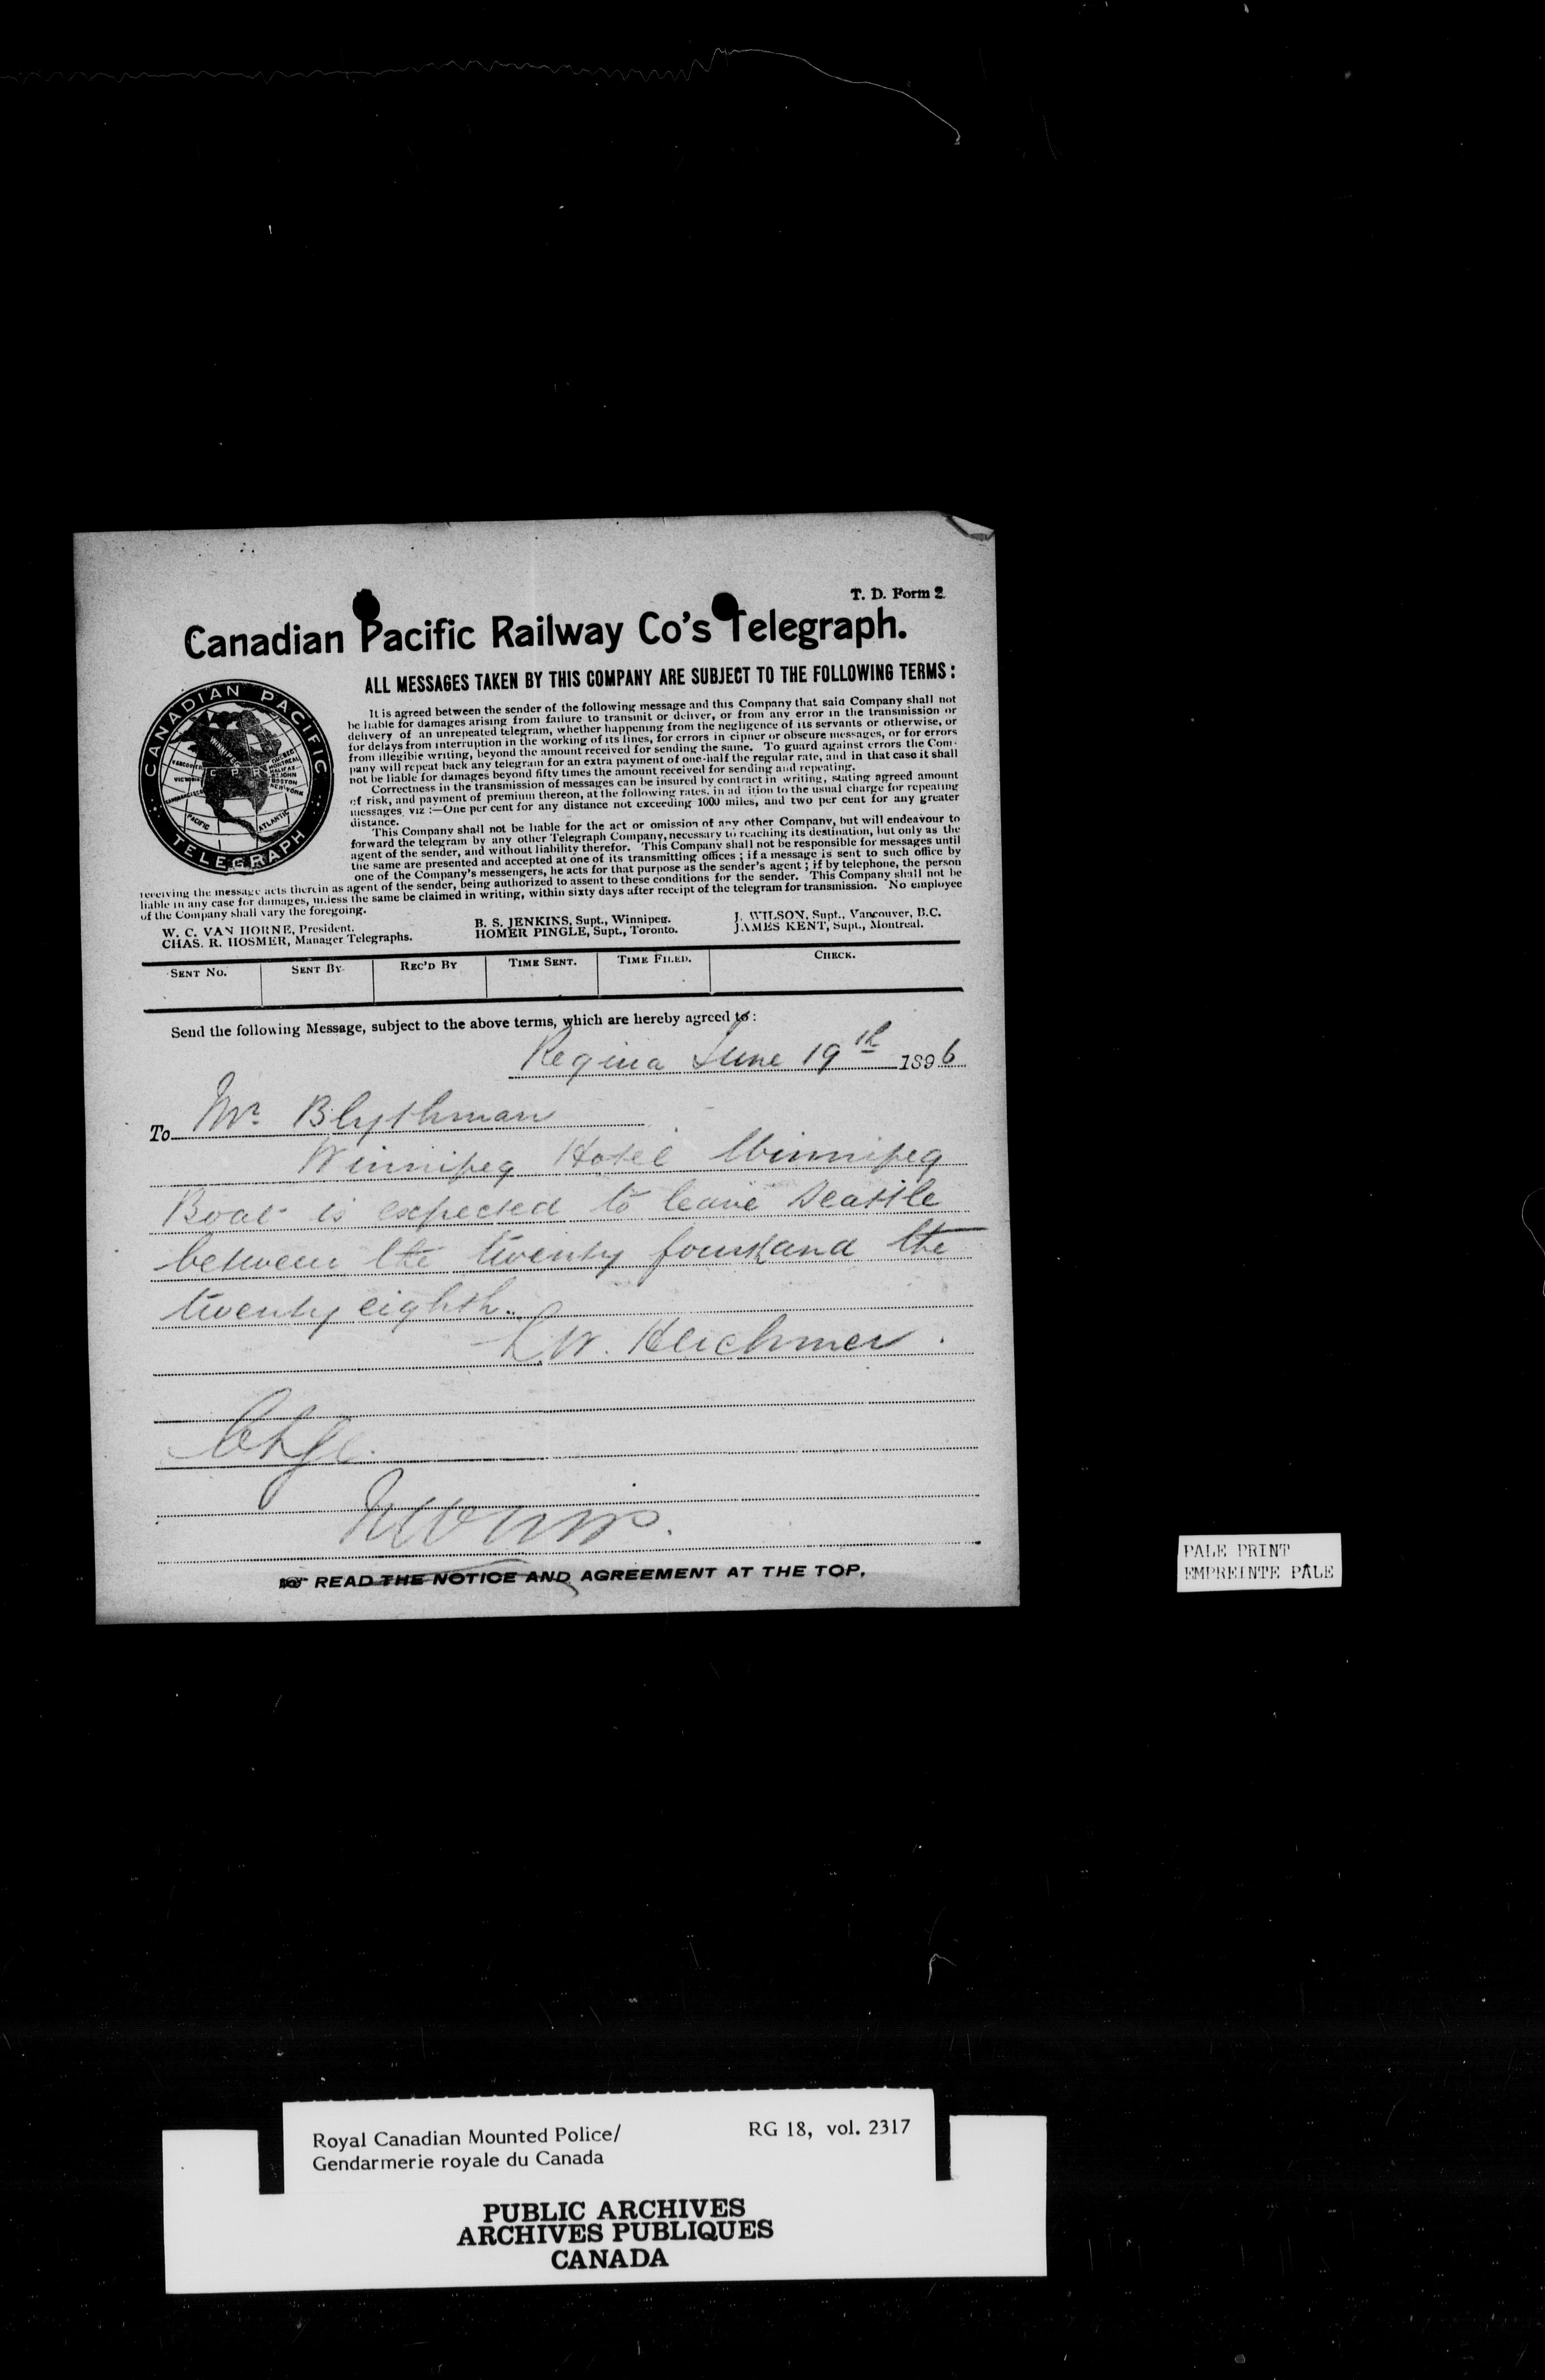 T. D. Form 2.
Canadian Pacific Railway Co's Telegraph.
ALL MESSAGES TAKEN BY THIS COMPANY ARE SUBJECT TO THE FOLLOWING TERMS:
CANADIAN PACIFIC
TELEGRAPH
C P R
PACIFIC
ATLANTIC
It is agreed between the sender of the following message and this Company that said Company shall not
be liable for damages arising from failure to transmit or deliver, or from any error in the transmission or
delivery of an unrepeated telegram, whether happening from the negligence of its servants or otherwise, or
for delays from interruption in the working of its lines, for errors in cipher or obscure messages, or for errors
from illegible writing, beyond the amount received for sending the same. To guard against errors the Com-
pany will repeat back any telegram for an extra payment of one-half the regular rate, and in that case it shall
not be liable for damages beyond fifty times the amount received for sending and repeating.
Correctness in the transmission of messages can be insured by contract in writing, stating agreed amount
of risk, and payment of premium thereon, at the following rates, in ad ition to the usual charge for repeating
messages, viz :—One per cent for any distance not exceeding 1000 miles, and two per cent for any greater
distance.
This Company shall not be liable for the act or omission of any other Company, but will endeavour to
forward the telegram by any other Telegraph Company, necessary to reaching its destination, but only as the
agent of the sender, and without liability therefor. This Company shall not be responsible for messages until
the same are presented and accepted at one of its transmitting offices ; if a message is sent to such office by
one of the Company's messengers, he acts for that purpose as the sender's agent ; if by telephone, the person
receiving the message acts therein as agent of the sender, being authorized to assent to these conditions for the sender. This Company shall not be
liable in any case for damages, unless the same be claimed in writing, within sixty days after receipt of the telegram for transmission. No employee
of the Company shall vary the foregoing.
W. C. VAN HORNE, President. B. S. JENKINS, Supt., Winnipeg. J. WILSON, Supt., Vancouver, B.C.
CHAS. R. HOSMER, Manager Telegraphs. HOMER PINGLE, Supt., Toronto. JAMES KENT, Supt., Montreal.
SENT NO. SENT BY REC'D BY TIME SENT. TIME FILED. CHECK.
Send the following Message, subject to the above terms, which are hereby agreed to:
Regina June 19th 1896
To Mr. Blythman
Winnipeg Hotel Winnipeg
Boat is expected to leave Seattle
between the twenty fourth and the
twenty eighth.
L.W. Herchmer.
Chge.
READ THE NOTICE AND AGREEMENT AT THE TOP.
PALE PRINT
EMPREINTE PÂLE
Royal Canadian Mounted Police/ RG 18, vol. 2317
Gendarmerie royale du Canada
PUBLIC ARCHIVES
ARCHIVES PUBLIQUES
CANADA